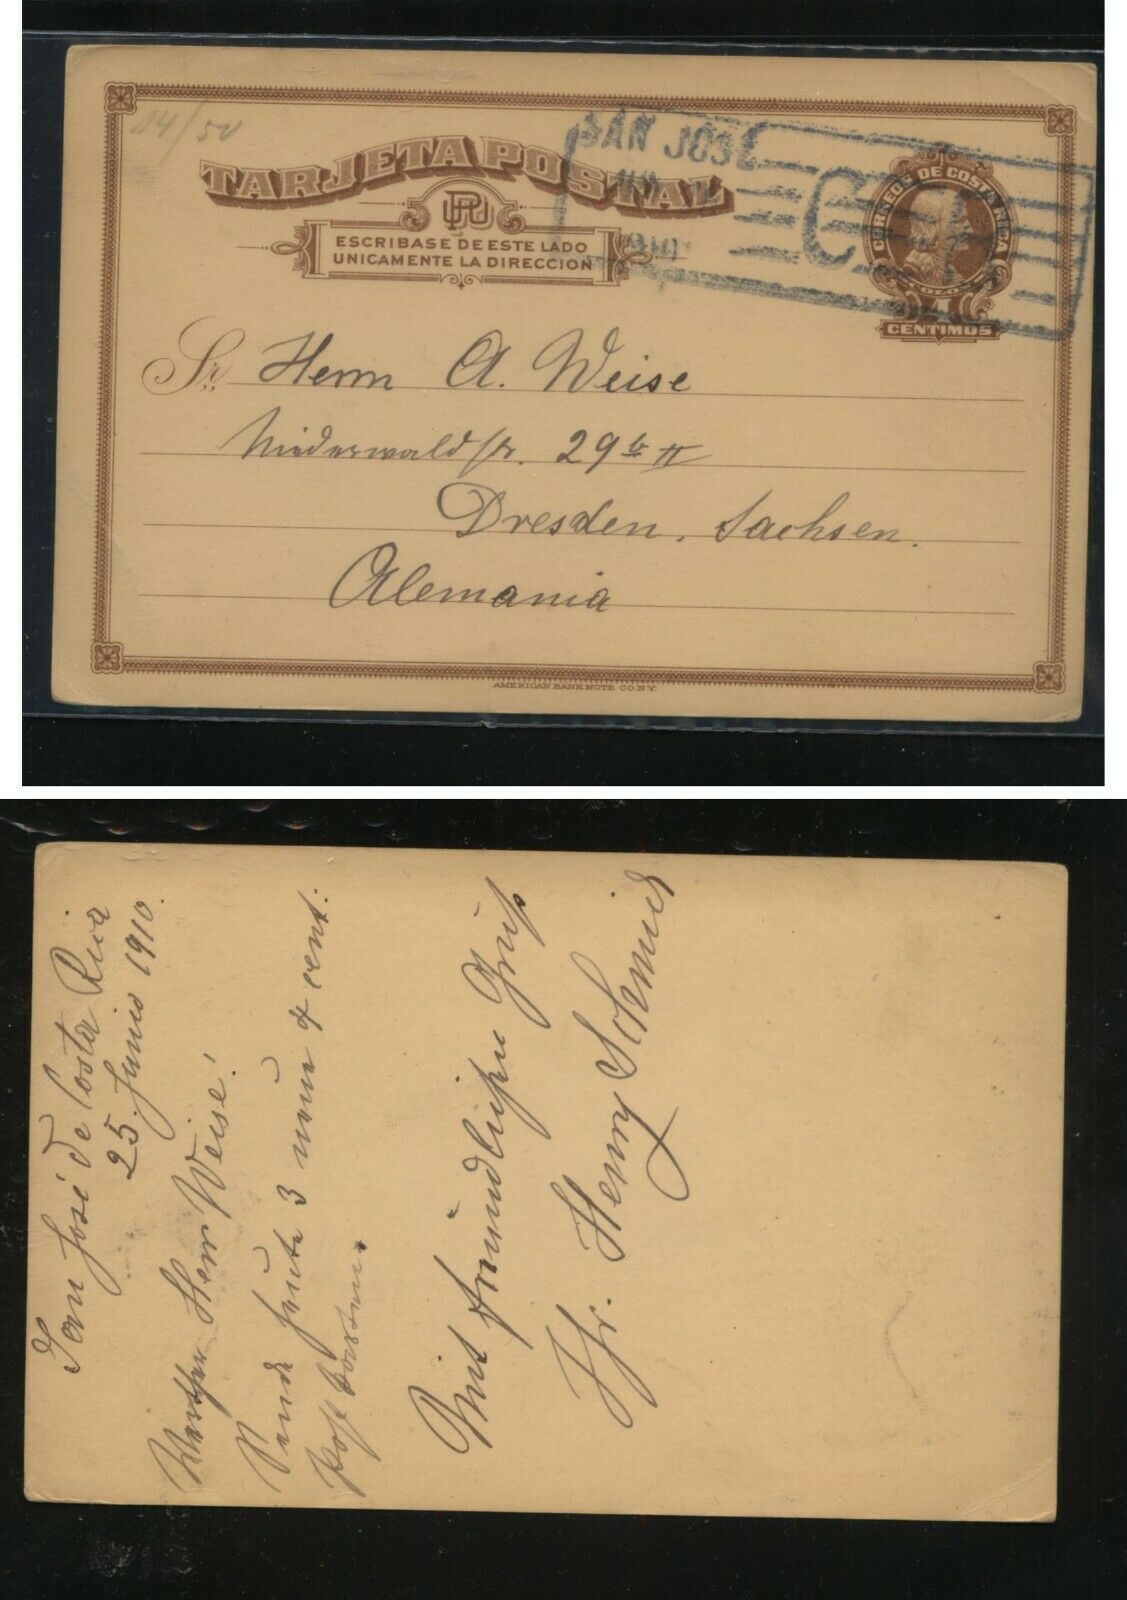 14/50
TARJETA POSTAL
ESCRIBASE DE ESTE LADO
UNICAMENTE LA DIRECCION
SAN JOSE
910
C
CORREOS DE COSTA RICA
4
CENTIMOS
Sr. Herrn A. Weise
Niederwaldstr. 29 b II
Dresden, Sachsen.
Alemania
AMERICAN BANK NOTE CO. N.Y.
San José de Costa Rica
25. Junio 1910.
Werther Herr Weise!
Sende heute 3 neue 4 cent:
Postkarten.
Mit freundlichen Gruß
Ihr. Henry Schmid